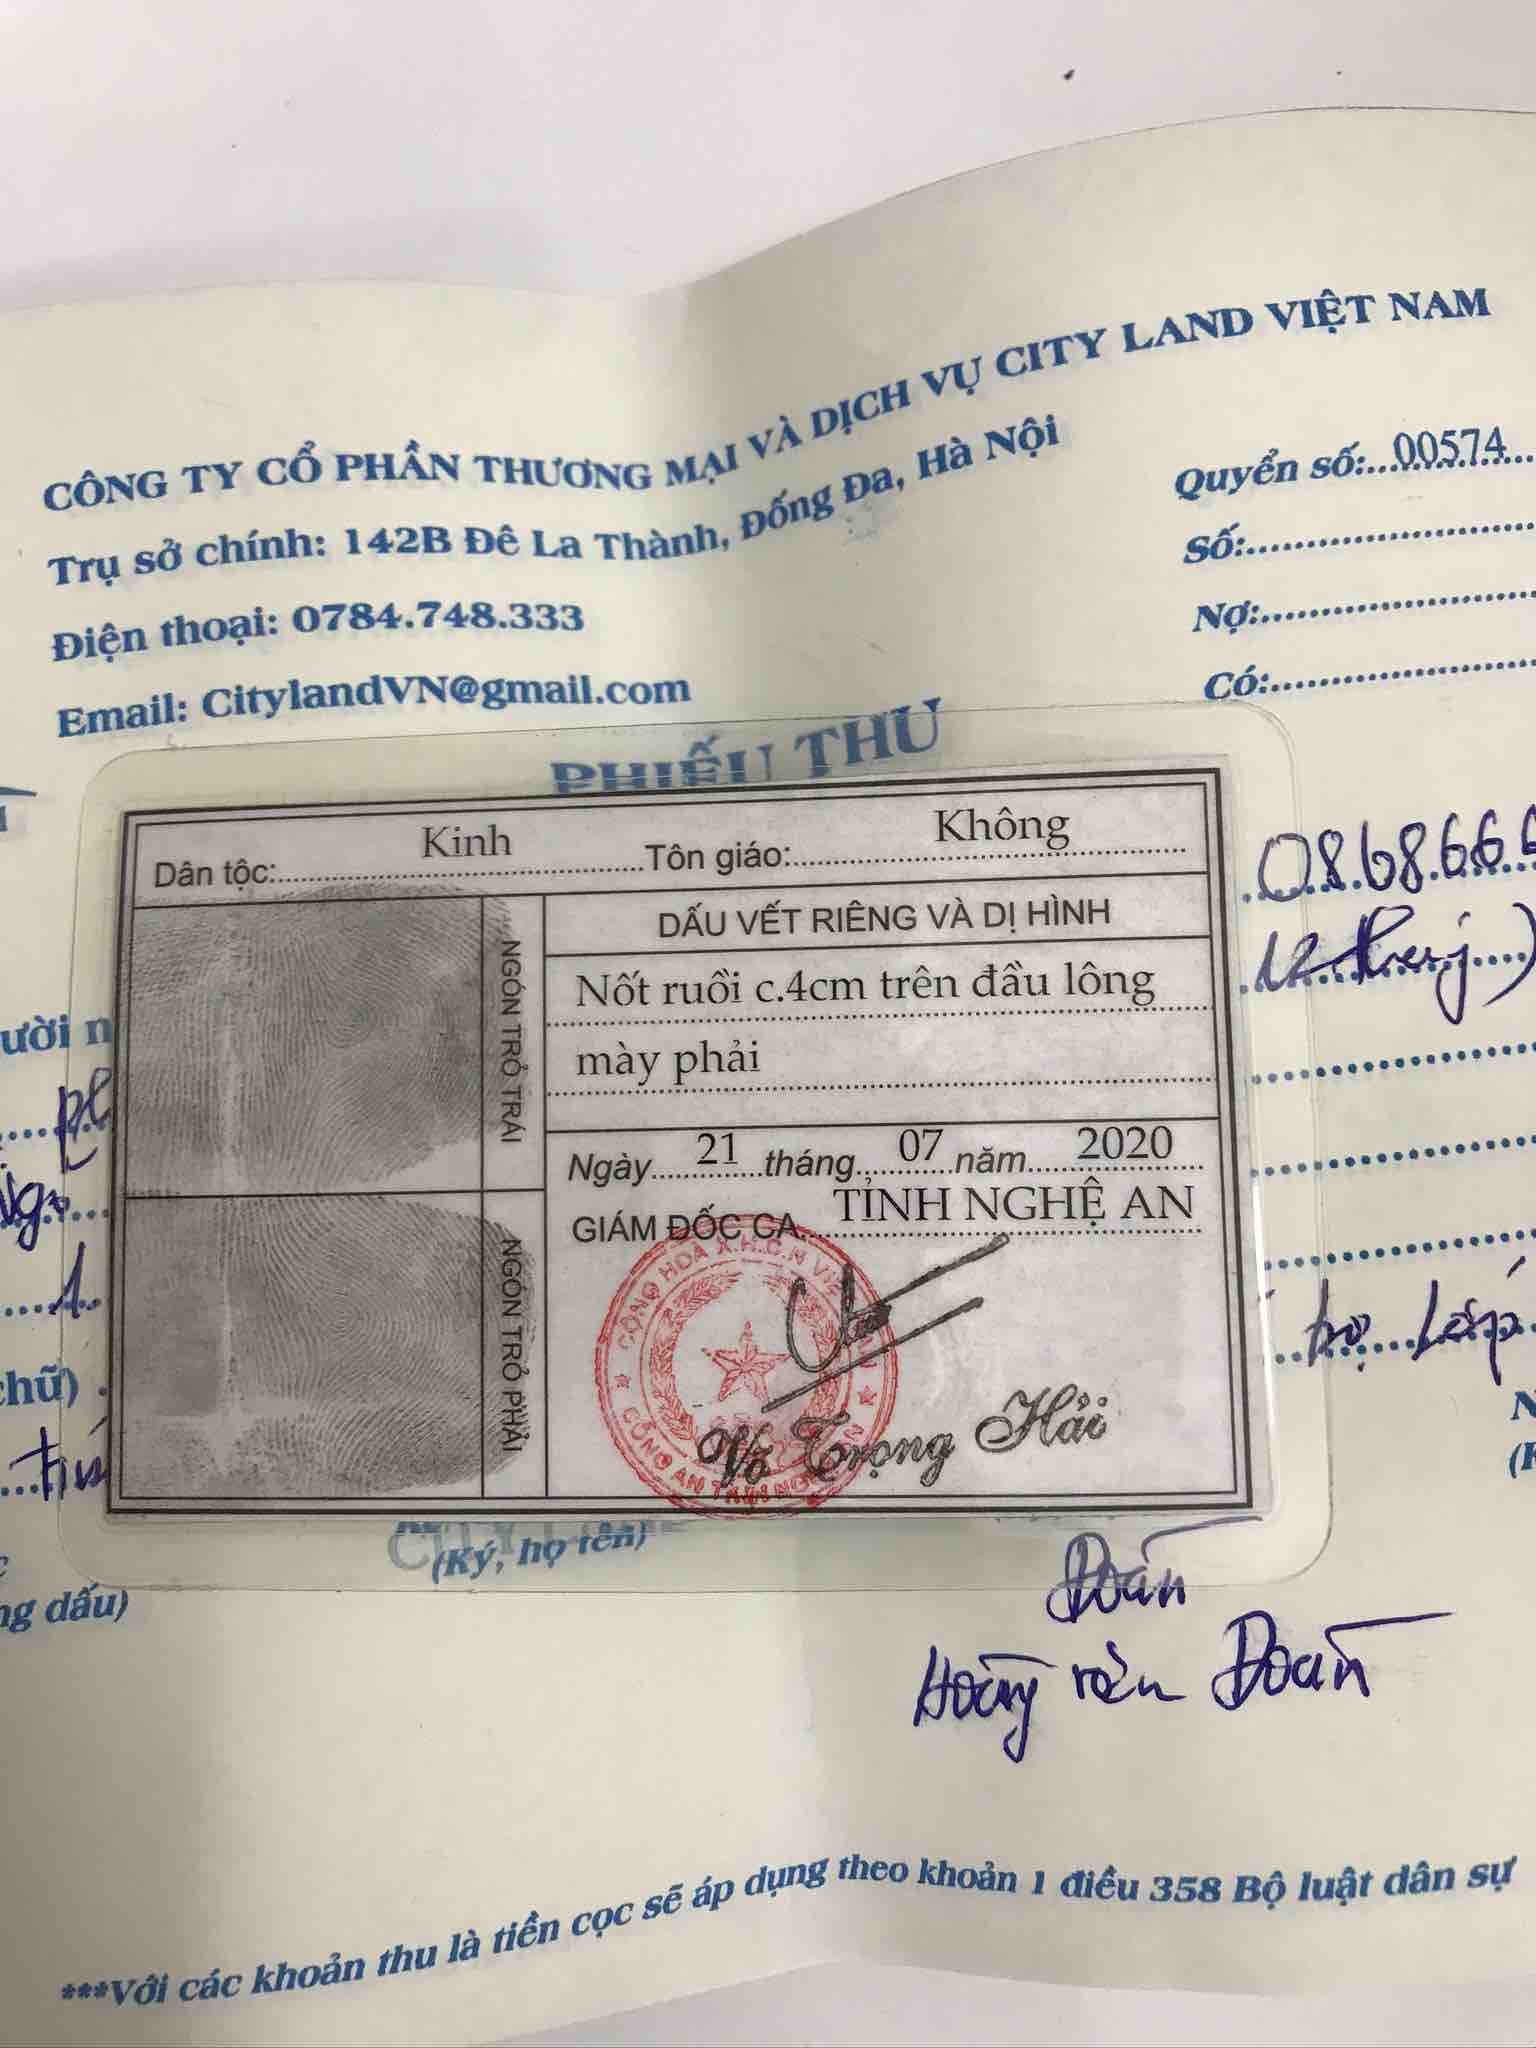 CÔNG TY CỔ PHẦN THƯƠNG MẠI VÀ DỊCH VỤ CITY LAND VIỆT NAM
Trụ sở chính: 142B Đê La Thành, Đống Đa, Hà Nội
Điện thoại: 0784.748.333
Email: CitylandVN@gmail.com
Quyển số: 00574
Số:
Nợ:
Có:
PHIẾU THU
Dân tộc: Kinh Tôn giáo: Không
NGÓN TRỎ TRÁI
NGÓN TRỎ PHẢI
DẤU VẾT RIÊNG VÀ DỊ HÌNH
Nốt ruồi c.4cm trên đầu lông
mày phải
Ngày 21 tháng 07 năm 2020
GIÁM ĐỐC CA TỈNH NGHỆ AN
CỘNG HÒA X.H.C.N VIỆT NAM
CÔNG AN TỈNH NGHỆ AN
Võ Trọng Hải
086866
ười n
1
chữ)
(Ký, họ tên)
ng dấu)
Đoàn
Hoàng văn Đoàn
***Với các khoản thu là tiền cọc sẽ áp dụng theo khoản 1 điều 358 Bộ luật dân sự